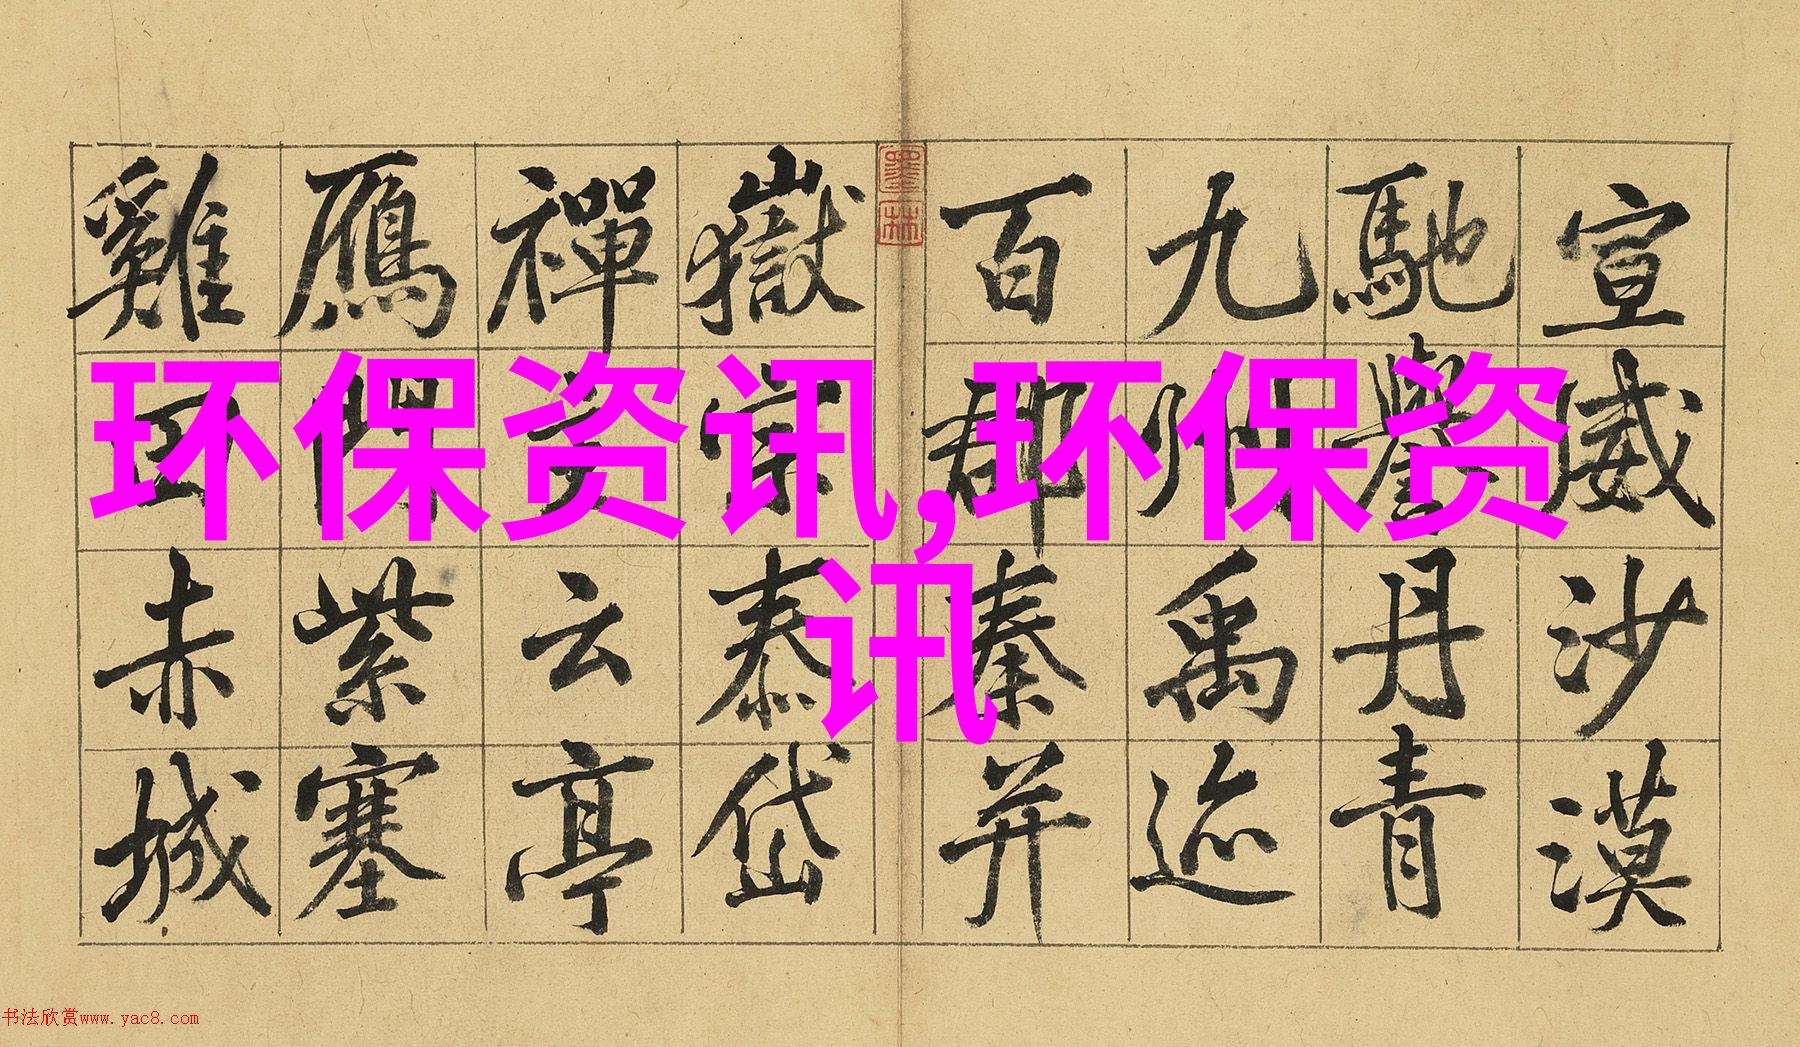 宣威沙漠
馳譽丹青
九州禹迹
百郡秦并
墨林
嶽宗泰岱
禪主云亭
鴈門紫塞
雞田赤城
环保资讯,环保资
讯
书法欣赏www.yac8.com